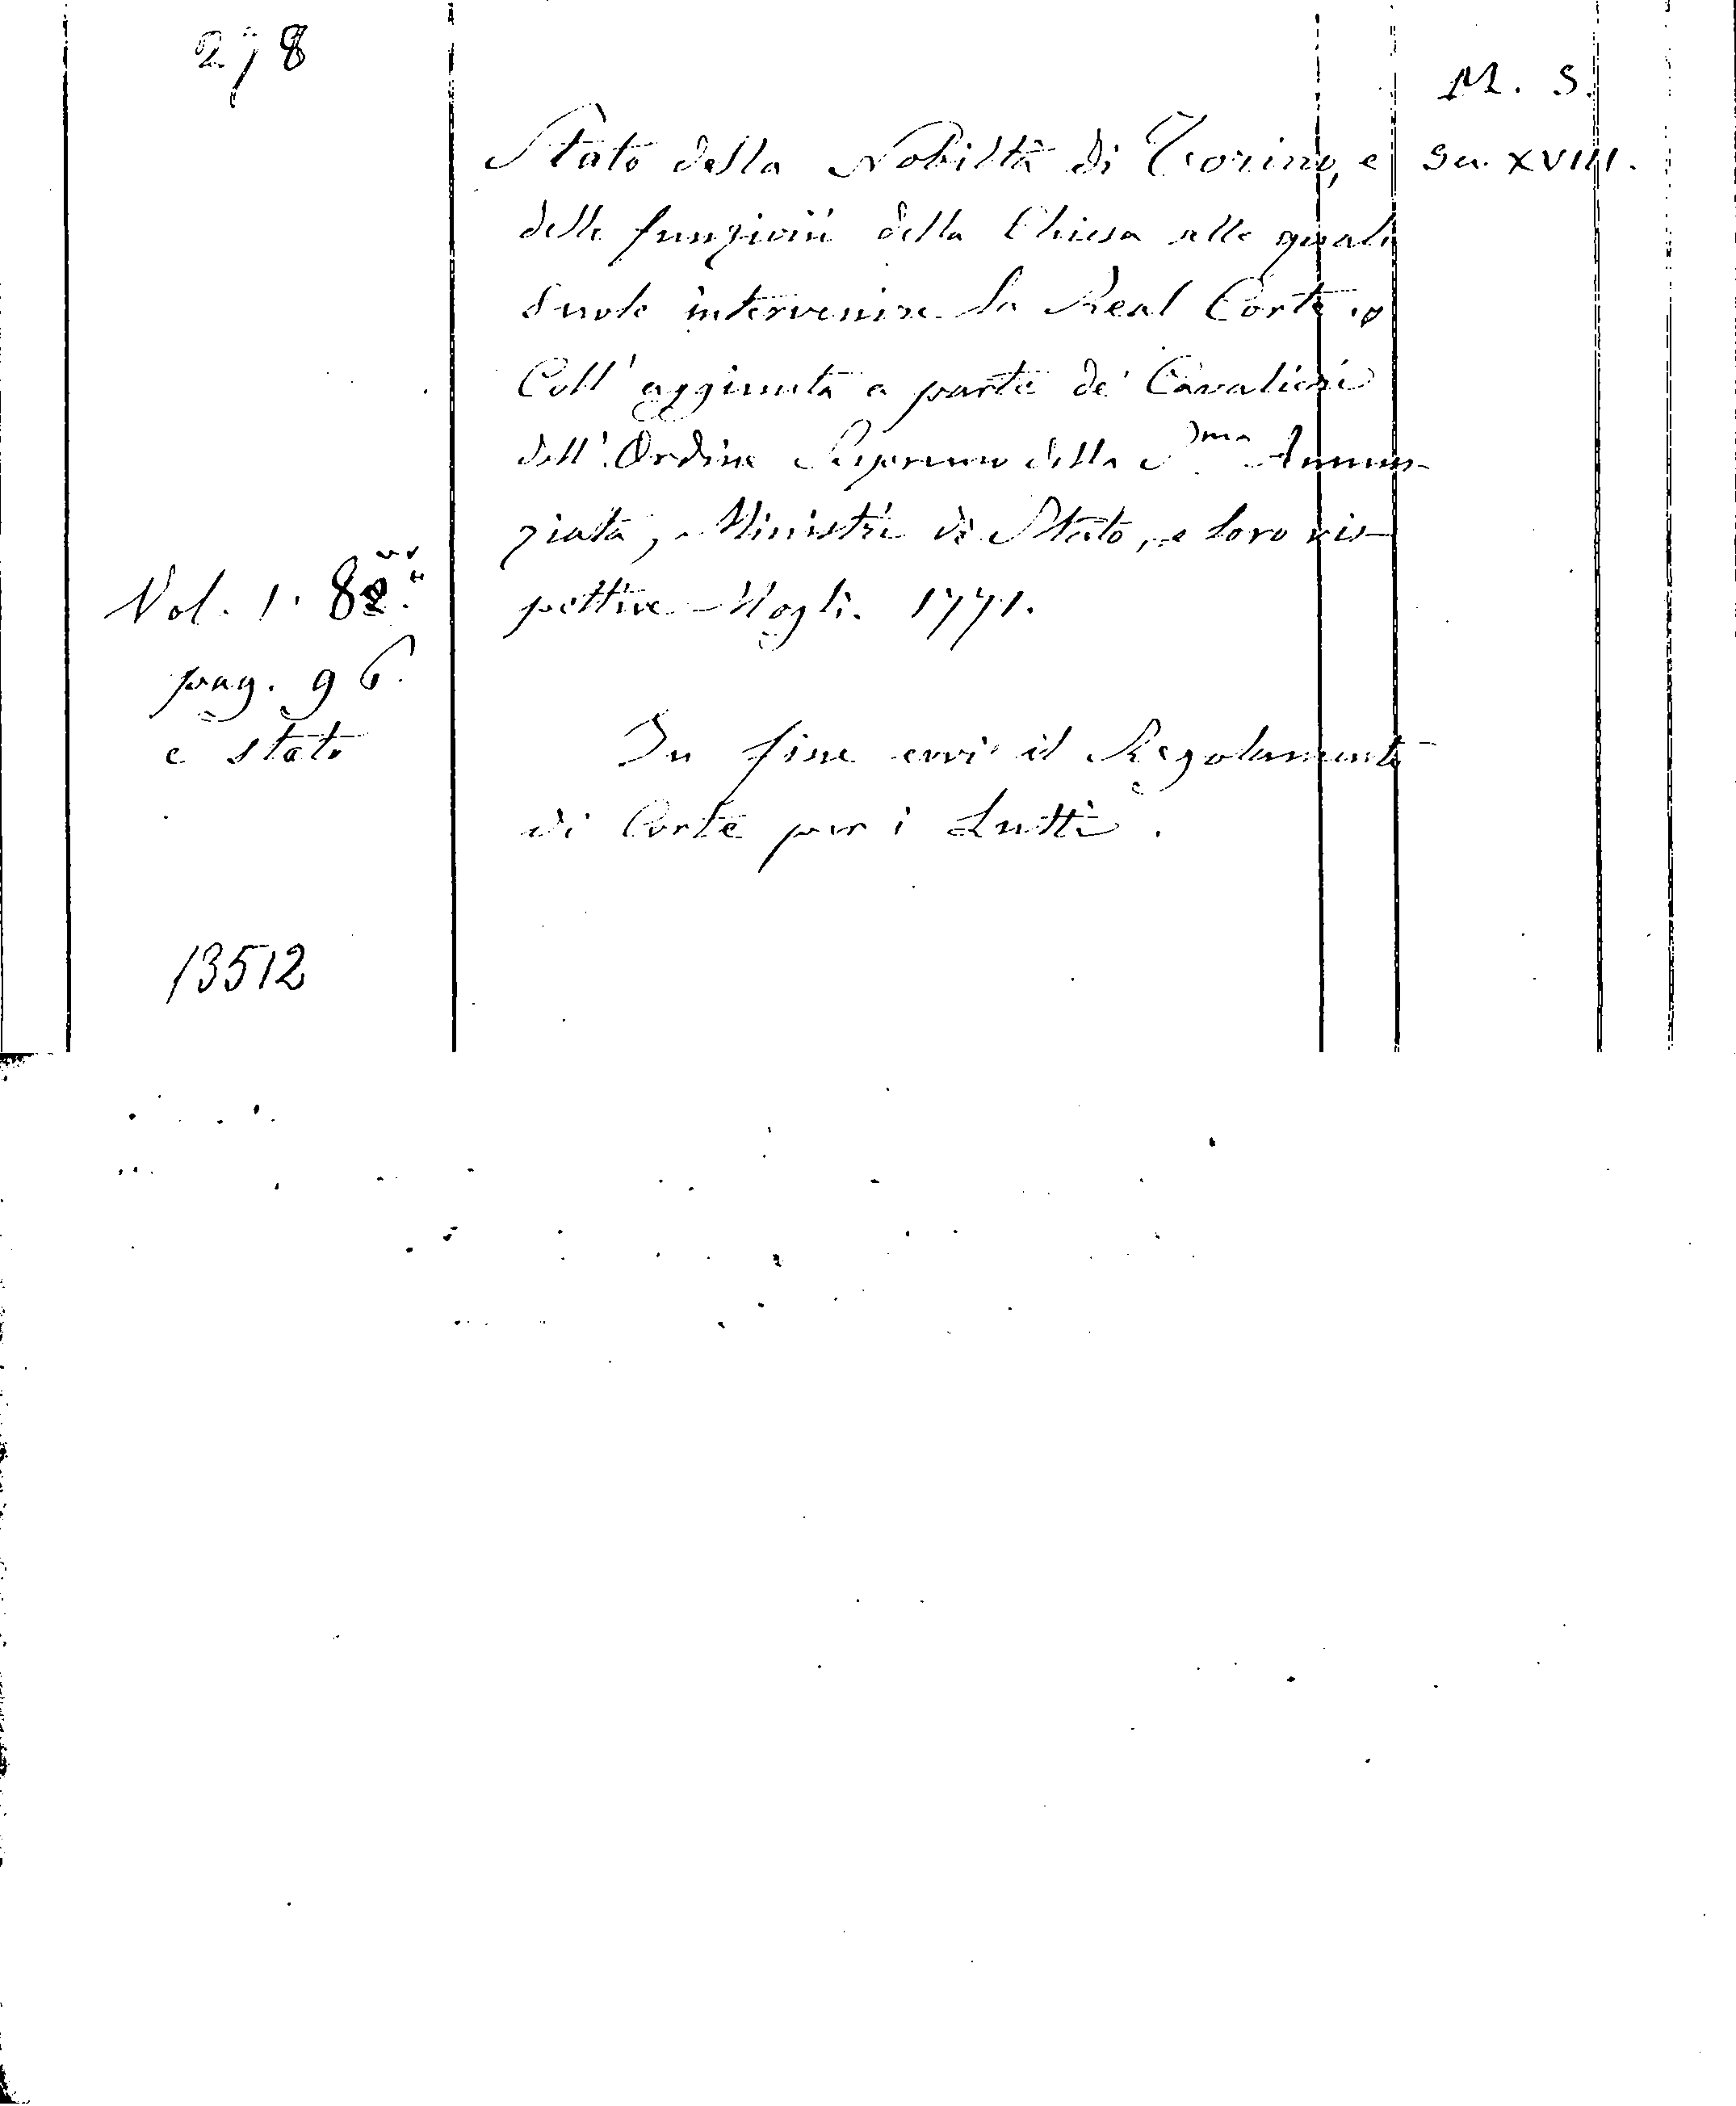 278
M. S.
Stato della Nobiltà di Torino, e
Sec. XVIII.
delle funzioni della Chiesa alle quali
suole intervenire la Real Corte.
Coll' aggiunta a parte de' Cavalieri
dell' Ordine Supremo della S.ma Annun-
ziata, Ministri di Stato, e loro ris-
pettive Mogli. 1771.
Vol. 1. 8°
pag. 96.
e stato
In fine evvi il Regolamento
di Corte per i Lutti.
13512